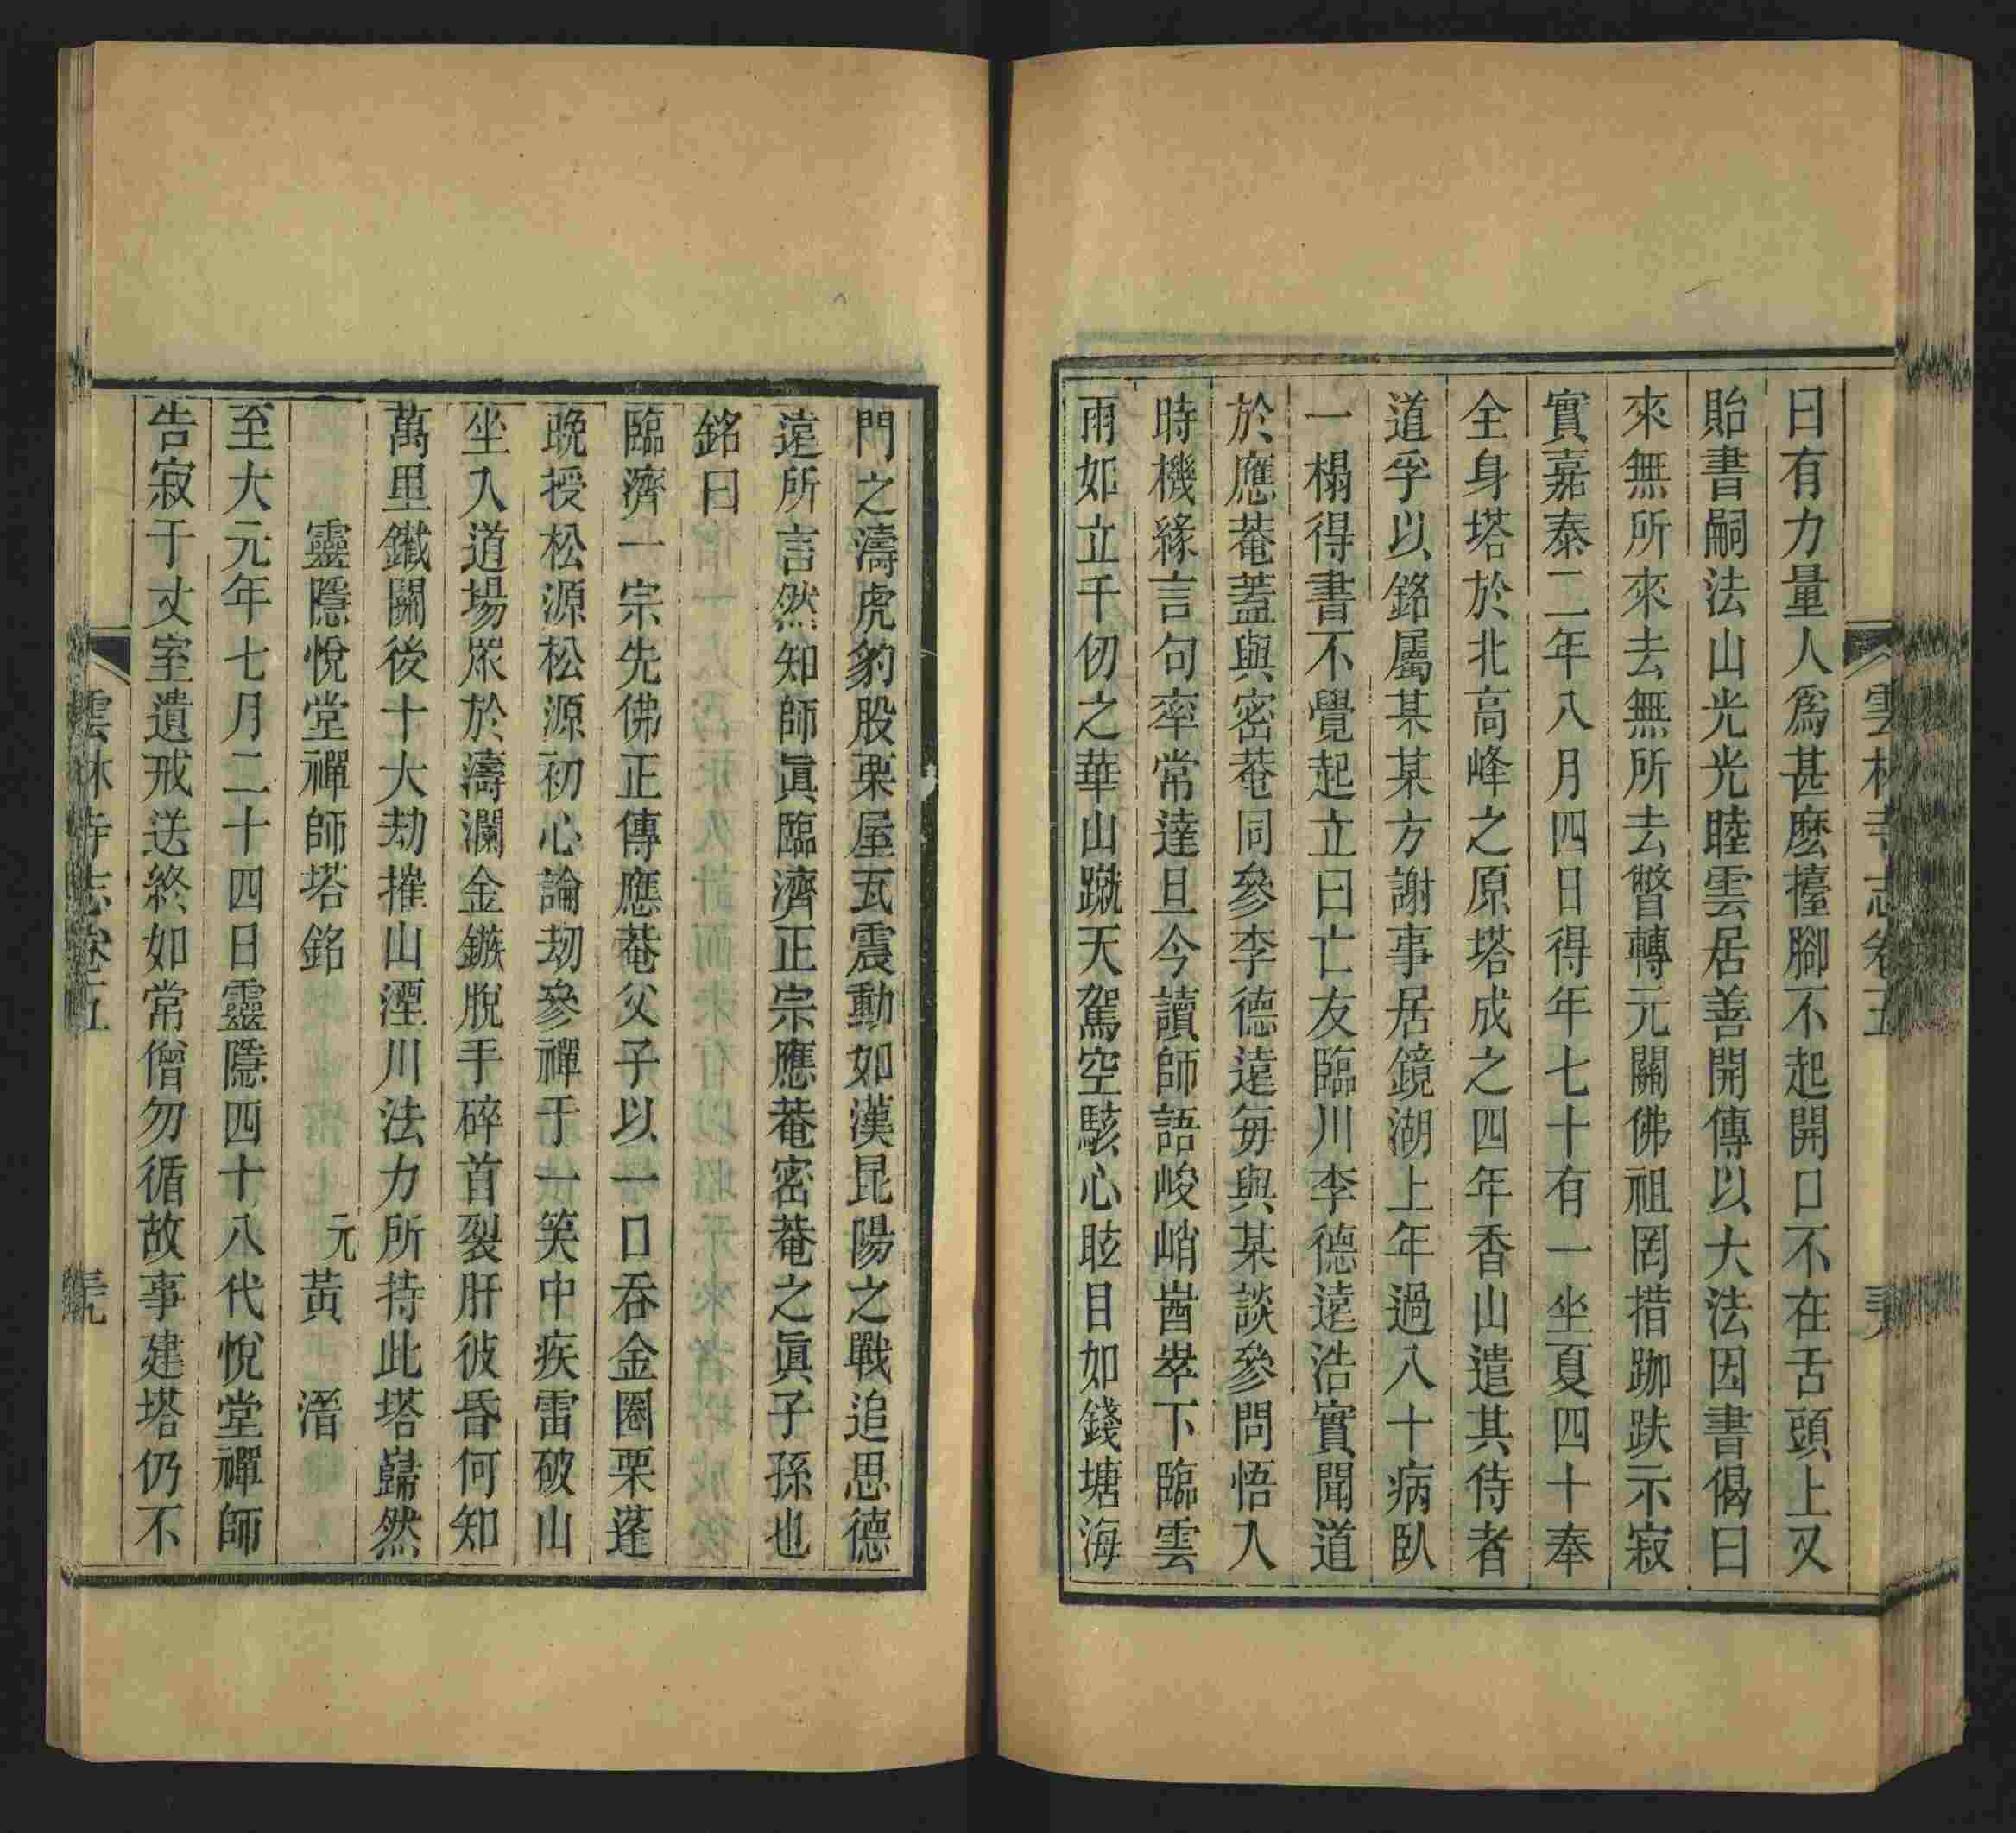 雲林寺志卷五
曰有力量人爲甚麽擡腳不起開口不在舌頭上又
貽書嗣法山光光睦雲居善開傳以大法因書偈曰
來無所來去無所去瞥轉元關佛祖罔措跏趺示寂
實嘉泰二年八月四日得年七十有一坐夏四十奉
全身塔於北高峰之原塔成之四年香山遣其侍者
道孚以銘屬某某方謝事居鏡湖上年過八十病臥
一榻得書不覺起立曰亡友臨川李德遠浩實聞道
於應菴蓋與密菴同參李德遠每與某談參問悟入
時機緣言句率常達旦今讀師語峻峭崷崒下臨雲
雨如立千仞之華山蹴天駕空駭心眩目如錢塘海
門之濤虎豹股栗屋瓦震動如漢昆陽之戰追思德
遠所言然知師眞臨濟正宗應菴密菴之眞子孫也
銘曰
臨濟一宗先佛正傳應菴父子以一口吞金圈栗蓬
晚授松源松源初心論刼參禪于一笑中疾雷破山
坐入道場眾於濤瀾金鏃脫手碎首裂肝彼昏何知
萬里鐵關後十大劫摧山湮川法力所持此塔巋然
靈隱悅堂禪師塔銘 元 黃 溍
至大元年七月二十四日靈隱四十八代悅堂禪師
告寂于丈室遺戒送終如常僧勿循故事建塔仍不
雲林寺志卷五